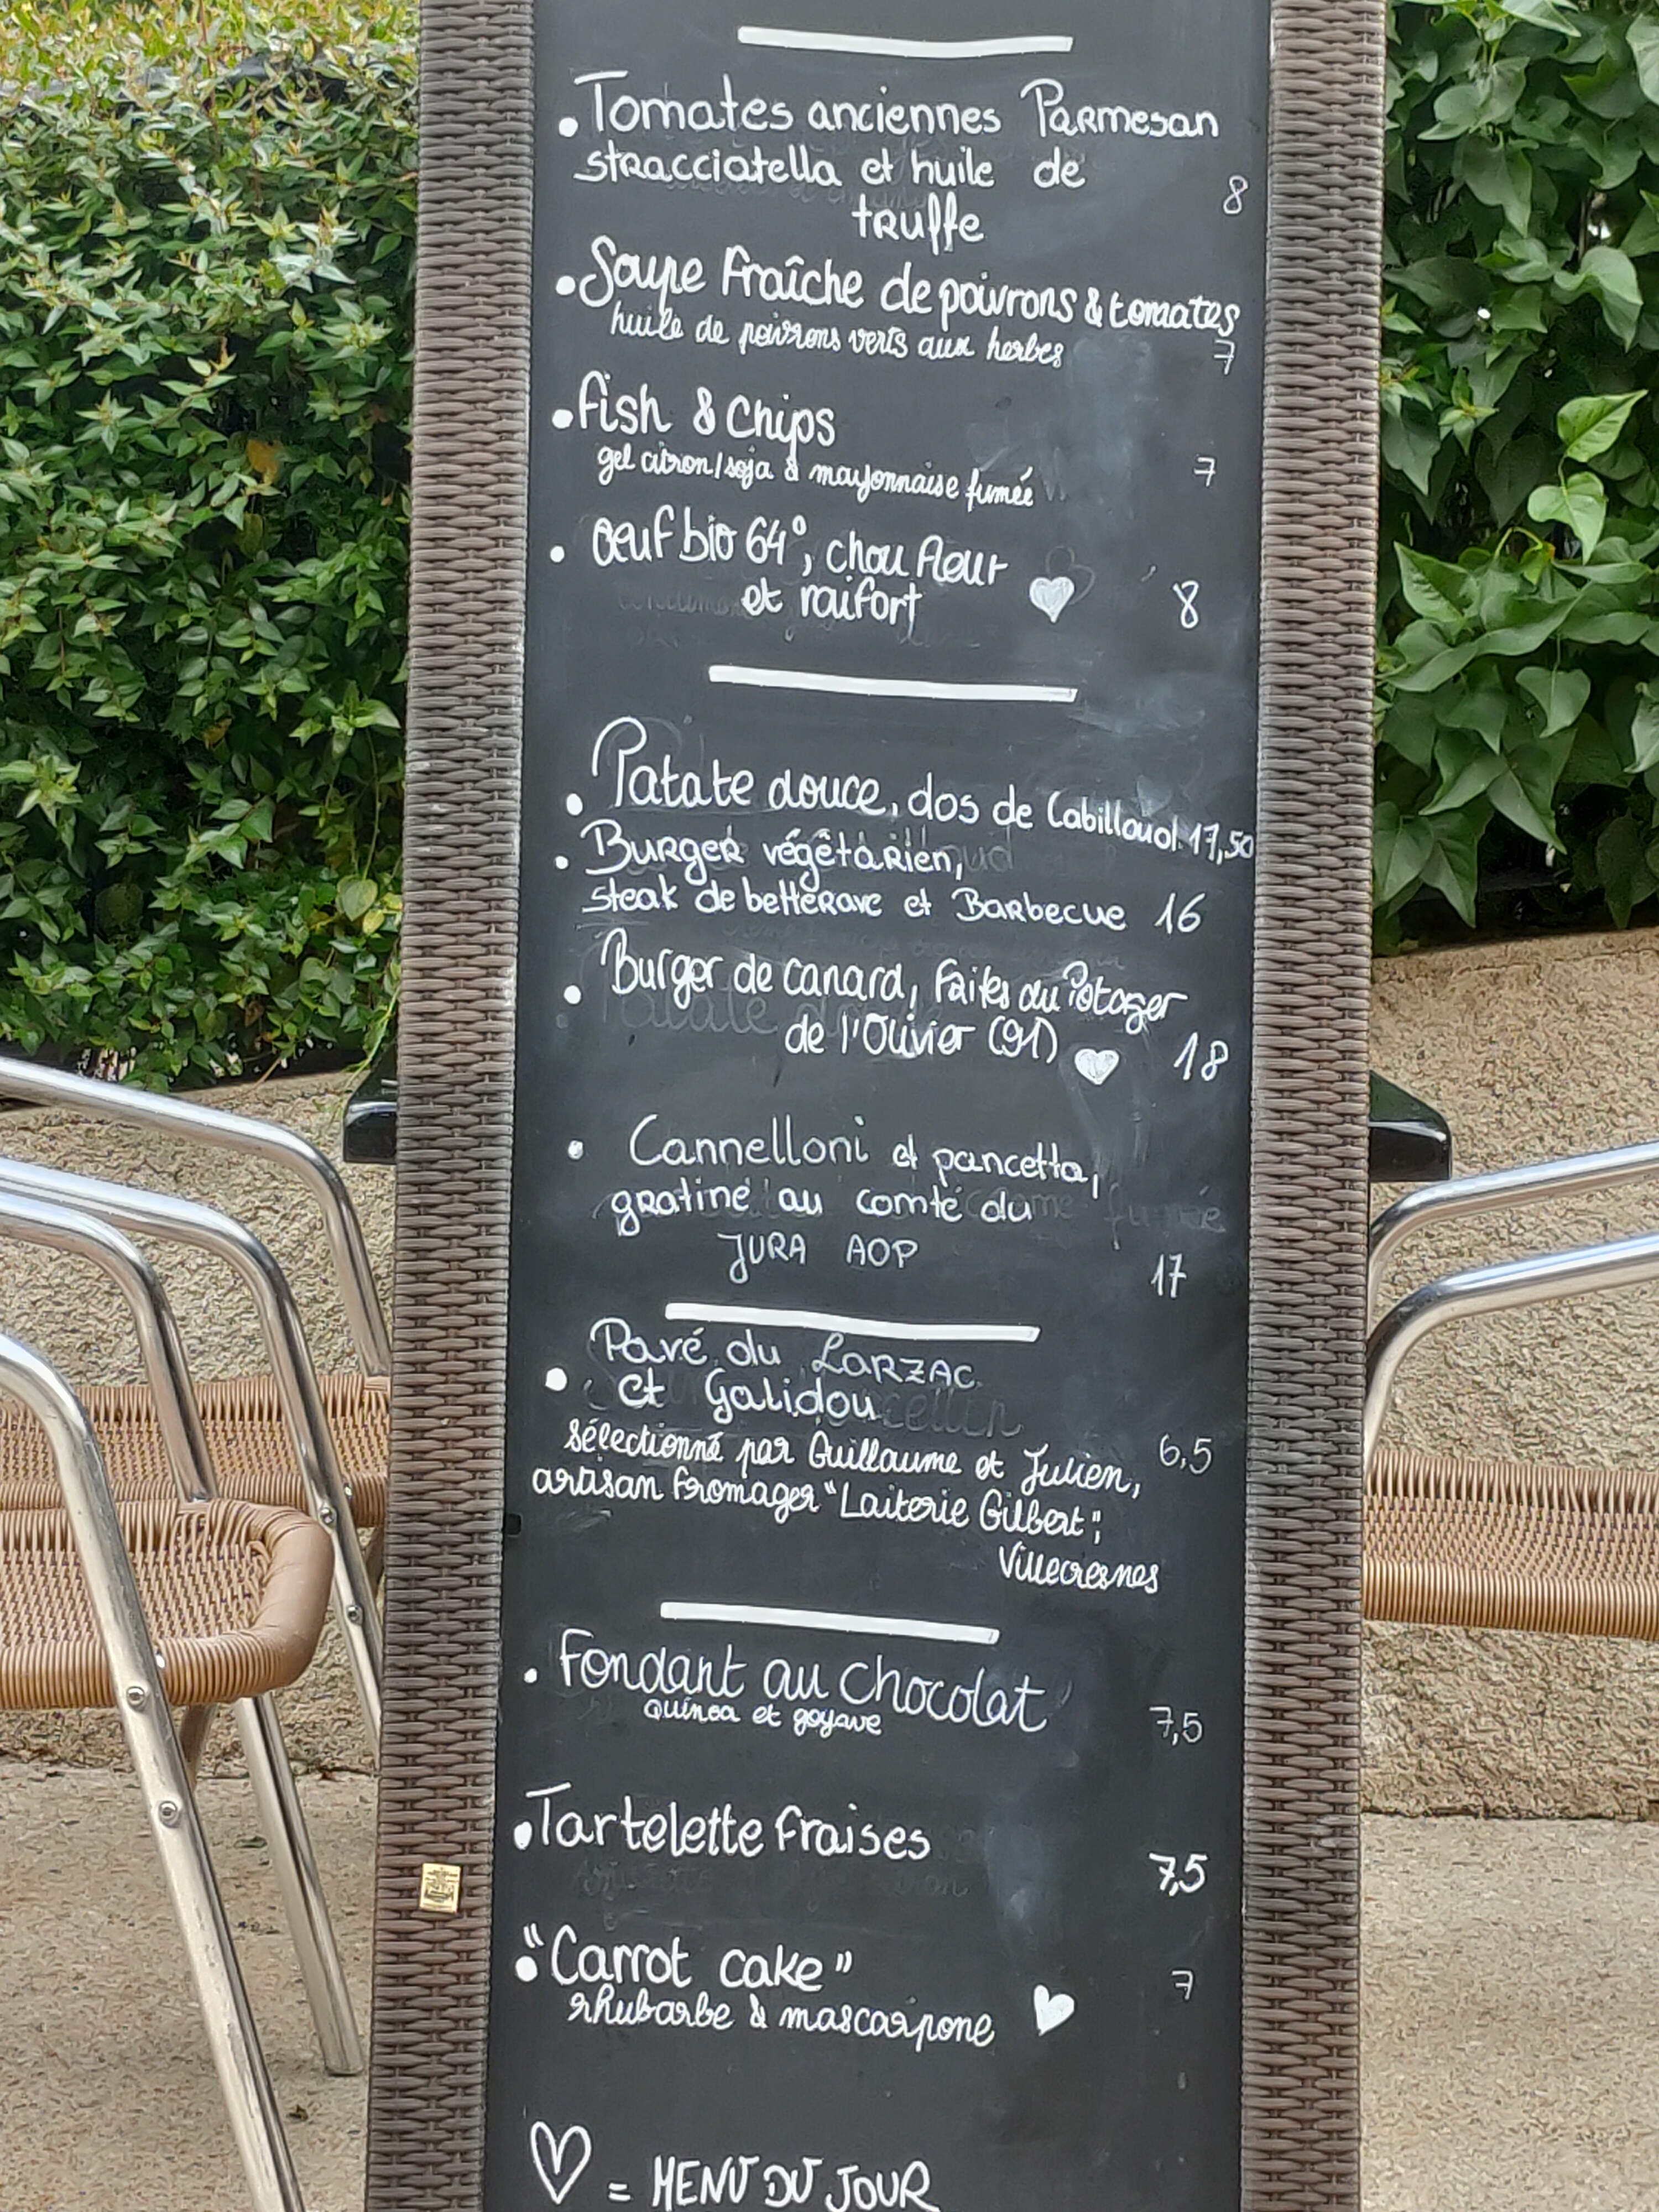 • Tomates anciennes Parmesan
stracciatella et huile de
truffe 8
• Soupe fraîche de poivrons & tomates
huile de poivrons verts aux herbes 7
• fish & chips
gel citron/soja & mayonnaise fumée 7
• œuf bio 64°, chou fleur
et raifort ♥ 8
• Patate douce, dos de Cabilloud 17,50
• Burger végêtarien,
steak de betterave et Barbecue 16
• Burger de canard, faites du Potager
de l'Olivier (91) ♥ 18
• Cannelloni et pancetta,
gratiné au comté du
JURA AOP 17
Pavé du LARZAC
• et Galidou
sélectionné par Guillaume et Julien, 6,5
artisan fromager "Laiterie Gilbert",
Villecresnes
• Fondant au chocolat
quinoa et goyave 7,5
• Tartelette fraises 7,5
• "Carrot cake" 7
rhubarbe & mascarpone ♥
♡ = MENU DU JOUR